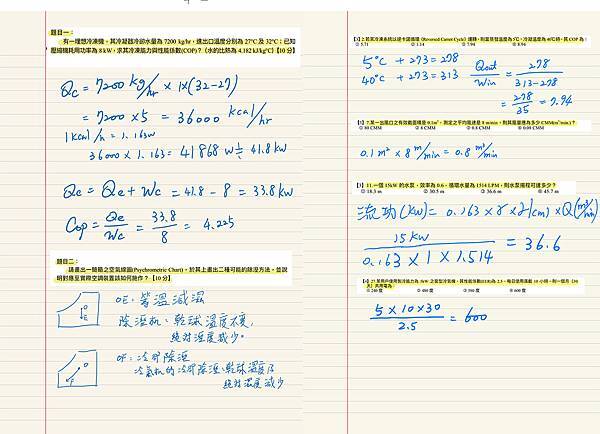 題目一：
有一理想冷凍機，其冷凝器冷卻水量為 7200 kg/hr，進出口溫度分別為 27°C 及 32°C；已知
壓縮機耗用功率為 8 kW，求其冷凍能力與性能係數(COP)？（水的比熱為 4.182 kJ/kg°C）【10 分】
Qc = 7200 kg/hr × 1×(32-27)
= 7200 × 5 = 36000 kcal/hr
1 kcal/h = 1.163w
36000 × 1.163 = 41868 w ≒ 41.8kw
Qc = Qe + Wc = 41.8 - 8 = 33.8 kw
Cop = Qe/Wc = 33.8/8 = 4.225
題目二：
請畫出一簡簡之空氣線圖(Psychrometric Chart)，於其上畫出二種可能的除溼方法，並說
明對應至實際空調裝置該如何施作？【10 分】
OE：等溫減濕
除溼机、乾球溫度不變，
絕對溼度減少。
OF：冷卻除溼
冷氣机的冷卻除溼、乾球溫度及
絕對濕度減少
【3】2.若氣冷凍系統以逆卡諾循環 (Reversed Carnot Cycle) 運轉，則當蒸發溫度為 5℃，冷凝溫度為 40℃時，其 COP 為：
① 5.71 ② 1.14 ③ 7.94 ④ 8.94
5°C + 273 = 278
40°C + 273 = 313
Qout/Win = 278/313-278
= 278/35 = 7.94
【3】7.某一出風口之有效截面積是 0.1m²，測定之平均風速是 8 m/min，則其風量應為多少 CMM(m³/min.)？
① 80 CMM ② 8 CMM ③ 0.8 CMM ④ 0.08 CMM
0.1 m² × 8 m/min = 0.8 m³/min
【3】11.一個 15kW 的水泵，效率為 0.6，循環水量為 1514 LPM，則水泵揚程可達多少？
① 18.3 m ② 30.5 m ③ 36.6 m ④ 45.7 m
流功(kw) = 0.163 × γ × H(m) × Q(m³/min)
15 kw/0.163 × 1 × 1.514 = 36.6
① 240 度 ② 480 度 ③ 500 度 ④ 600 度
5 × 10 × 30/2.5 = 600